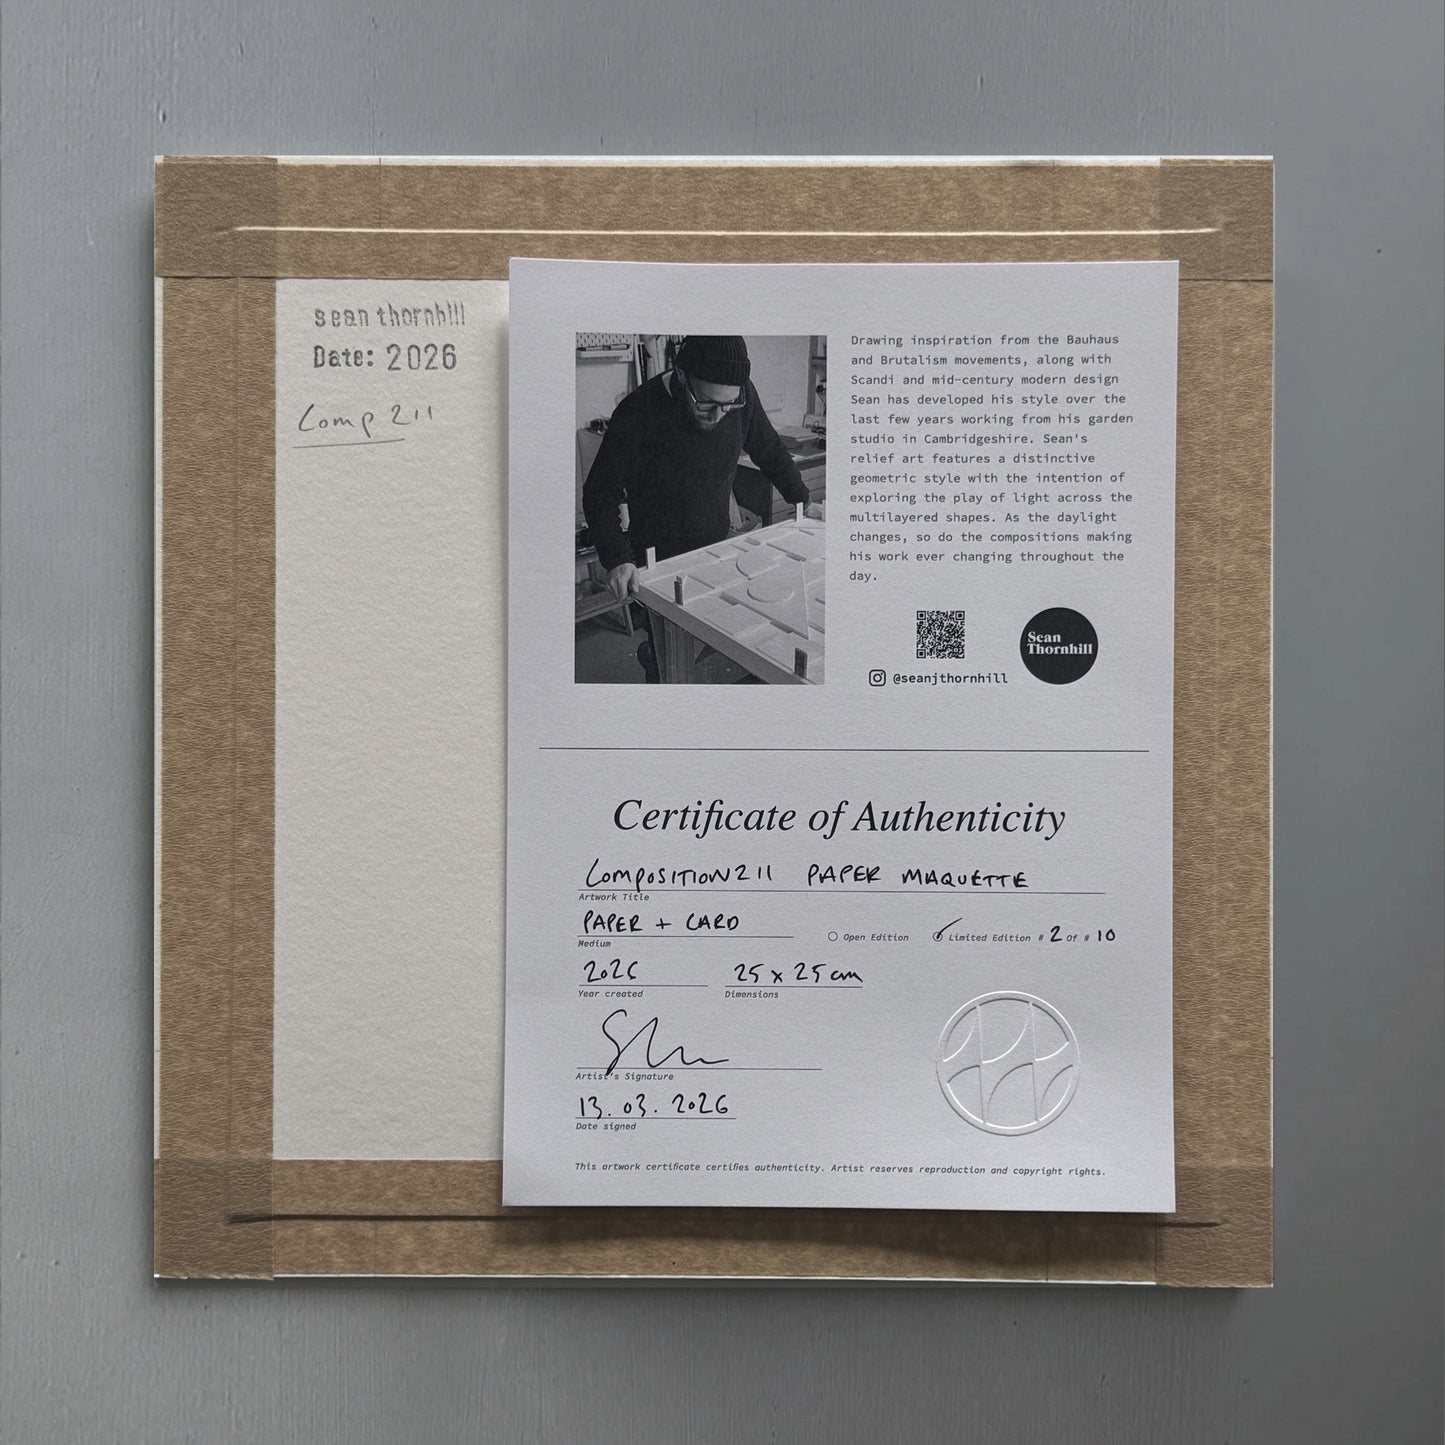 sean thornhill
Date: 2026
Comp 211
Drawing inspiration from the Bauhaus
and Brutalism movements, along with
Scandi and mid-century modern design
Sean has developed his style over the
last few years working from his garden
studio in Cambridgeshire. Sean's
relief art features a distinctive
geometric style with the intention of
exploring the play of light across the
multilayered shapes. As the daylight
changes, so do the compositions making
his work ever changing throughout the
day.
Sean
Thornhill
@seanjthornhill
Certificate of Authenticity
COMPOSITION 211 PAPER MAQUETTE
Artwork Title
PAPER + CARD
Medium
Open Edition Limited Edition # 2 of # 10
2026 25 x 25 cm
Year created Dimensions
Artist's Signature
13.03.2026
Date signed
This artwork certificate certifies authenticity. Artist reserves reproduction and copyright rights.